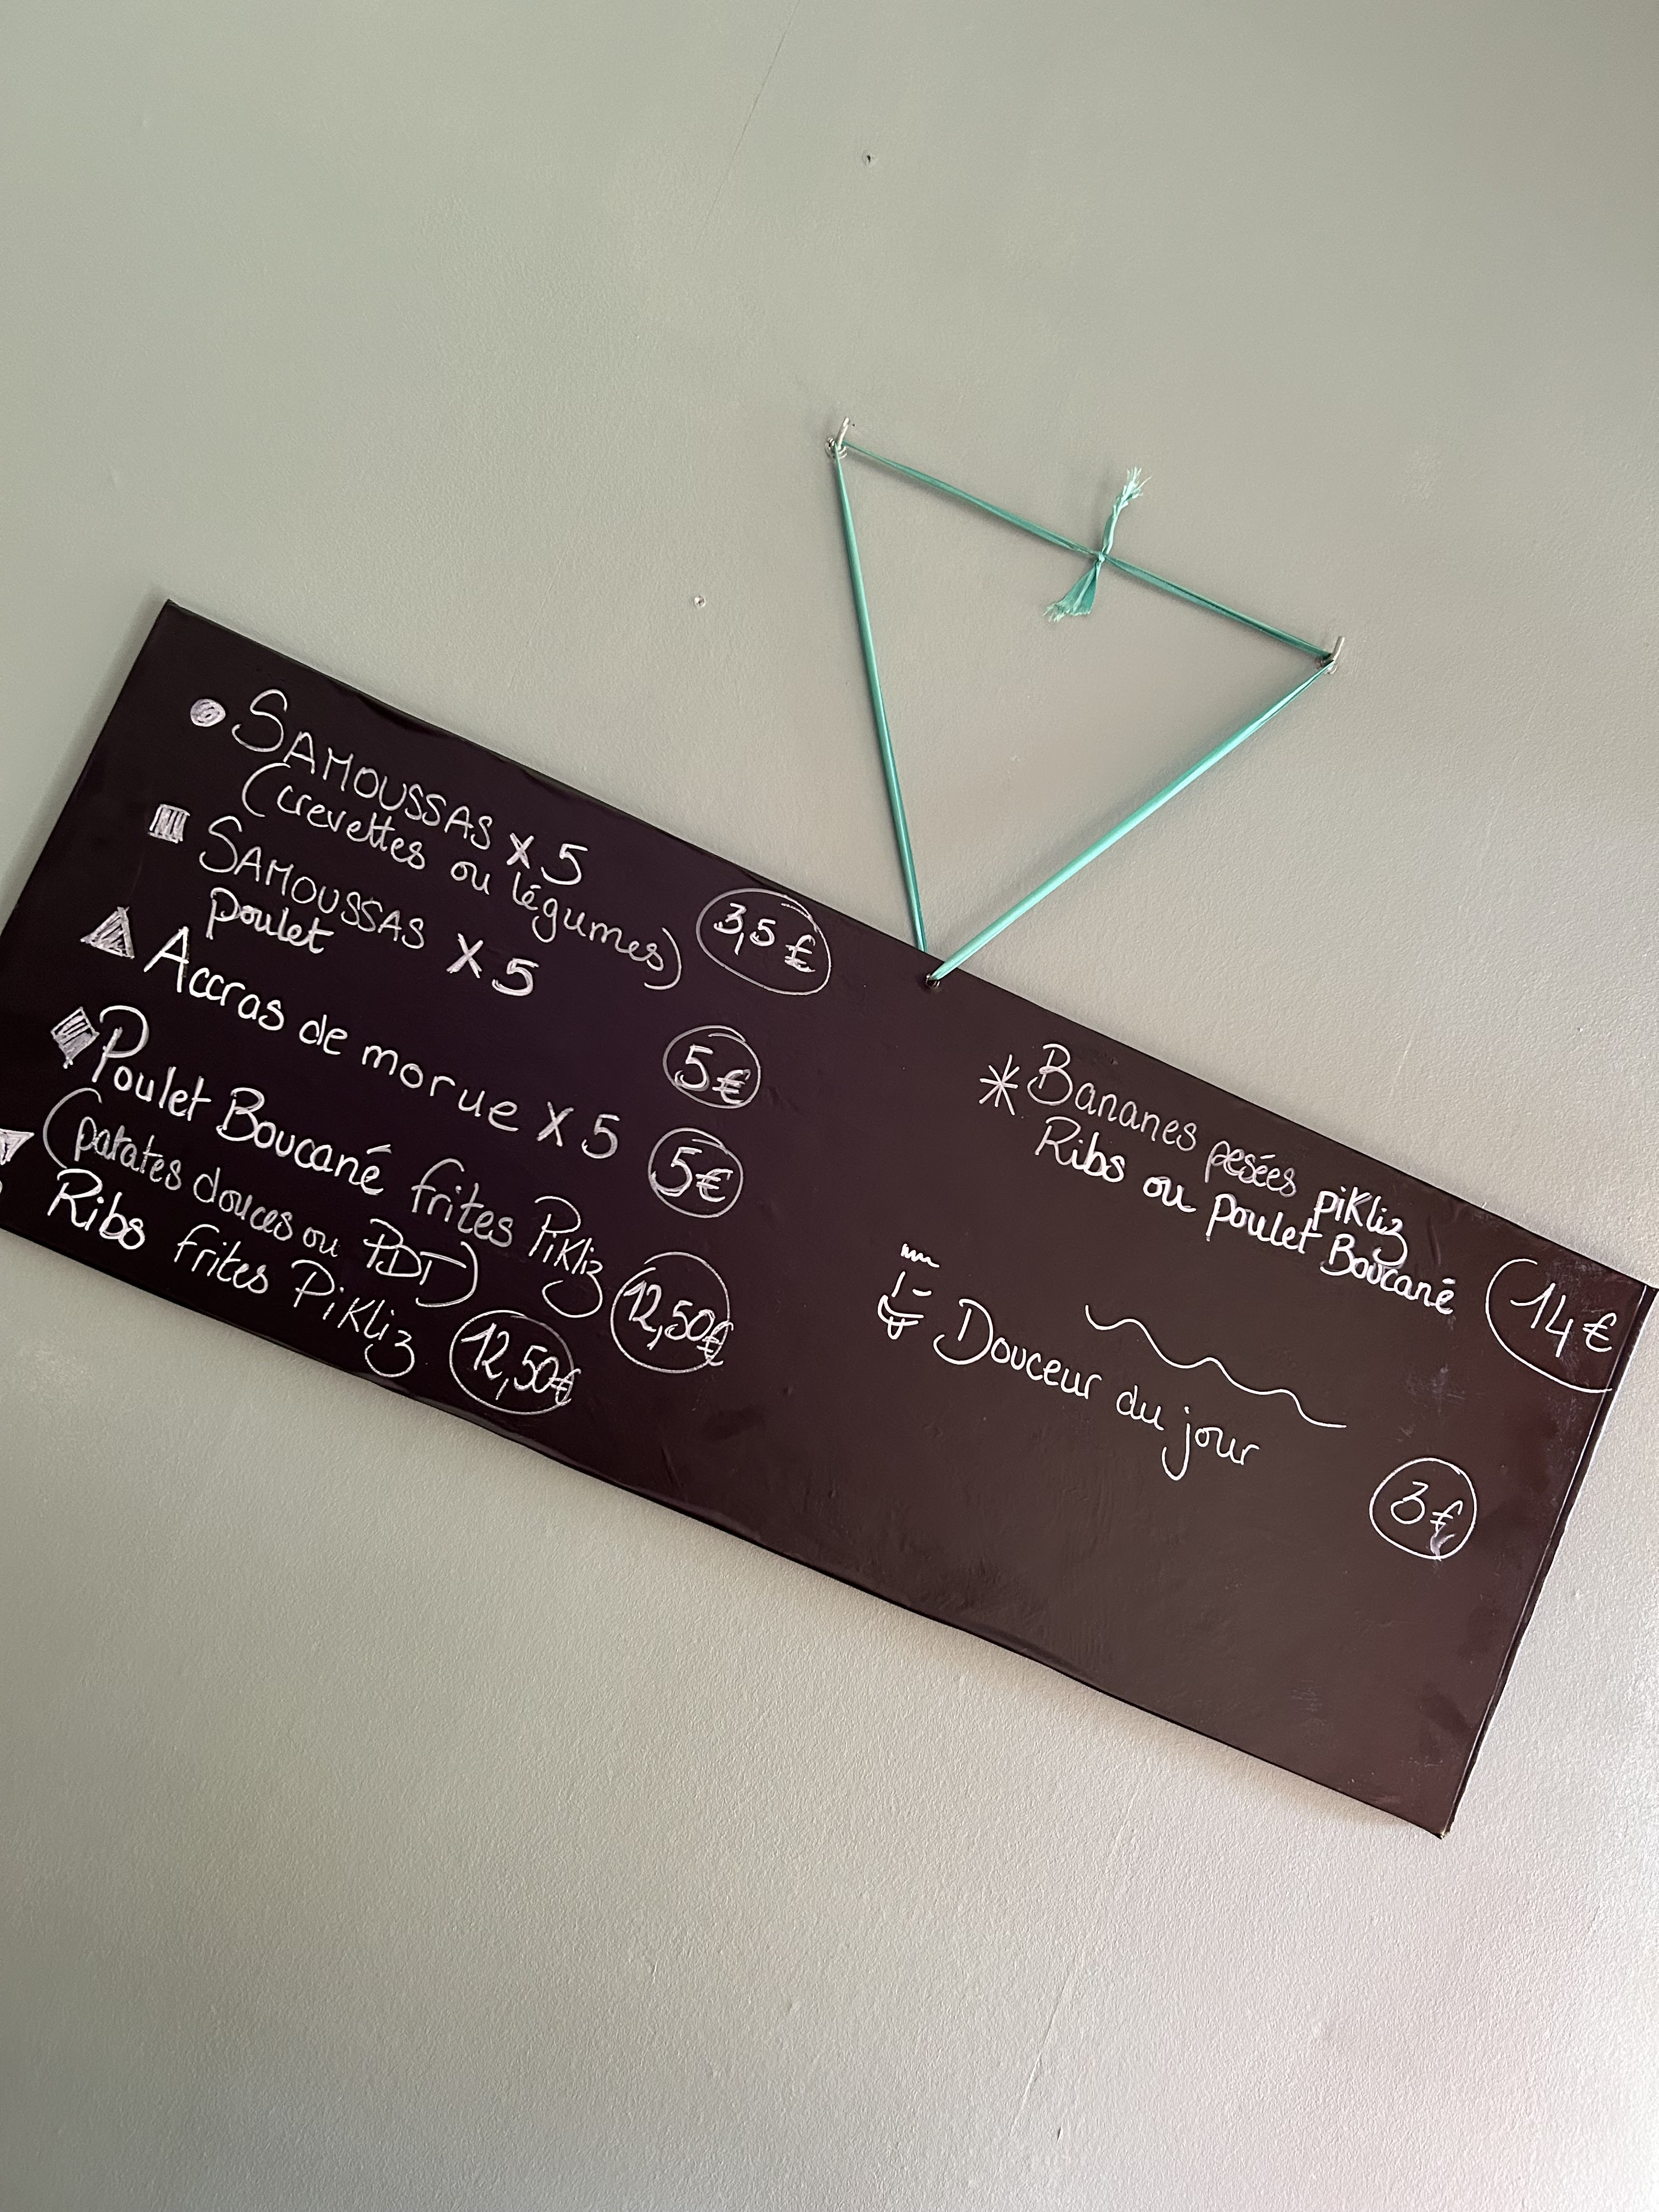 SAMOUSSAS X 5
(crevettes ou légumes) 3,5 €
SAMOUSSAS X 5
poulet 5€
Accras de morue X 5 5€
Poulet Boucané frites Pikliz
(patates douces ou PDT) 12,50€
Ribs frites Pikliz 12,50€
Bananes pesées pikliz
Ribs ou poulet Boucané 14€
Douceur du jour 3€